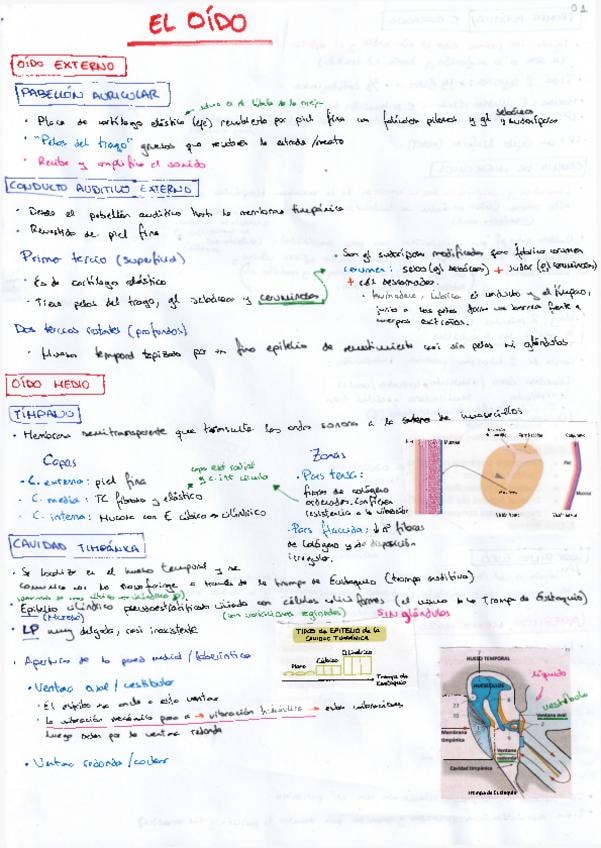 01
EL OÍDO
OÍDO EXTERNO
PABELLÓN AURICULAR
Placa de cartílago elástico (eje) recubierto por piel fina con folículos pilosos y gl sebáceas y sudoríparas
"Pelos del trago" gruesos que recubren la entrada/meato
Recibe y amplifica el sonido
CONDUCTO AUDITIVO EXTERNO
Desde el pabellón auditivo hasta la membrana timpánica
Revestido de piel fina
Primer tercio (superficial)
Es de cartílago elástico
Tiene pelos del trago, gl sebáceas y ceruminosas
Son gl sudoríparas modificadas que fabrican cerumen
cerumen: sebo (gl sebáceas) + sudor (gl ceruminosas)
+ cél descamadas.
el conducto y el tímpano,
junto a los pelos forma una barrera frente a
cuerpos extraños.
Dos tercios restantes (profundos)
Hueso temporal tapizado por un fino epitelio de revestimiento casi sin pelos ni glándulas.
OÍDO MEDIO
TÍMPANO
Membrana semitransparente que transmite las ondas sonoras a la cadena de huesecillos
Capas
C. externa: piel fina
C. media: TC fibroso y elástico
C. interna: Mucosa con E cúbico o cilíndrico
capa ext radial
y c. int circular
Zonas
Pars tensa:
fibras de colágeno
ordenadas. Confieren
resistencia a la vibración
Pars flaccida: ↓nº fibras
de colágeno y de disposición
irregular.
Piel
Mucosa
CAVIDAD TIMPÁNICA
Se localiza en el hueso temporal y se
comunica con la nasofaringe a través de la trompa de Eustaquio (trompa auditiva)
Epitelio cilíndrico pseudoestratificado ciliado con células caliciformes (el mismo de la Trompa de Eustaquio)
(Mucosa)
(con variaciones regionales)
SIN glándulas
LP muy delgada, casi inexistente
TIPOS de EPITELIO de la
CAVIDAD TIMPÁNICA
Plano
Cúbico
Cilíndrico
Trompa de
Eustaquio
Apertura de la pared medial/laberíntica
Ventana oval/vestibular
El estribo se ancla a esta ventana
La vibración mecánica pasa a → vibración hidráulica → estas vibraciones
luego salen por la ventana redonda
Ventana redonda/coclear
HUESO TEMPORAL
HUESECILLOS
líquido
vestíbulo
Ventana oval
Membrana
timpánica
Ventana
redonda
Cavidad timpánica
Trompa de Eustaquio